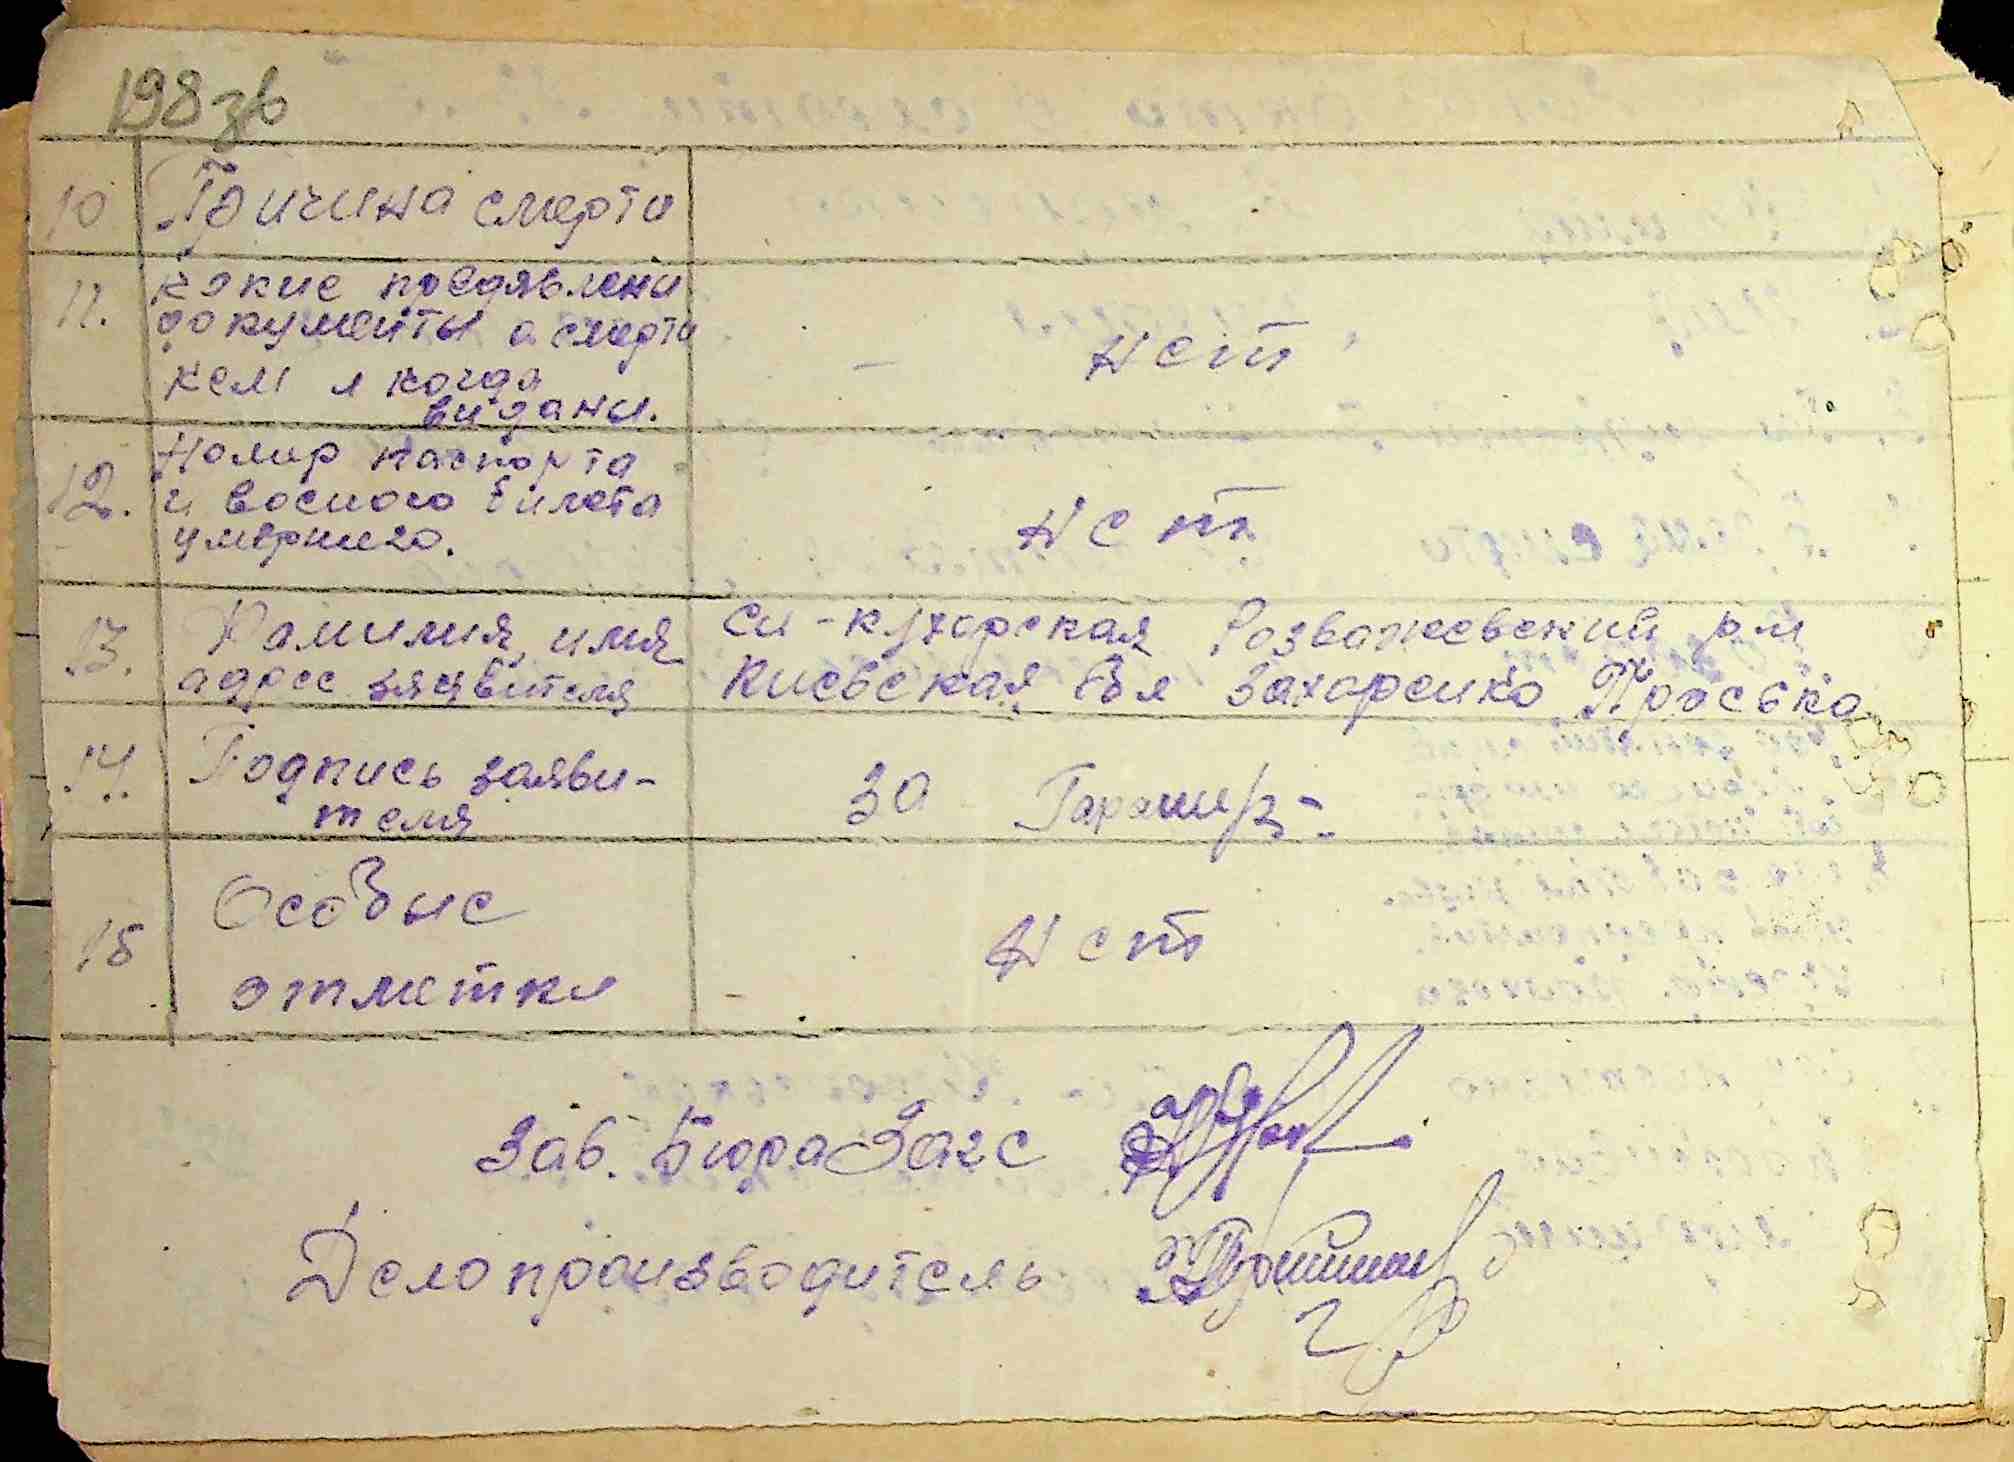 198зв
10 Причина смерти
11. Какие предявлени
документы о смерти
кем и когда
виданы.
нет
12. Номир паспорта
и восного билета
умершего.
нет
13. Фамилия, имя
адрес заявителя
Си-кухорская Розважевский р-н
Киевская обл Захаренко Праська
14. Подпись заяви-
теля
За
15 Особые
отметки
Нет
Зав. Бюра Загс
Делопроизводитель